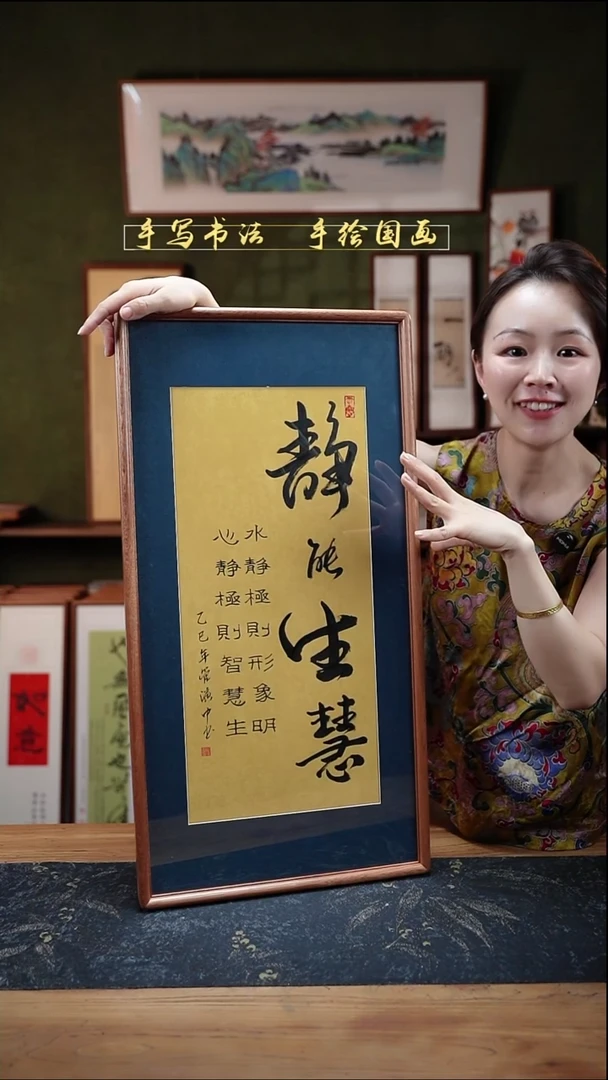 手写书法 手绘国画
静能生慧
水静極則形象明
心静極則智慧生
乙巳年
如意